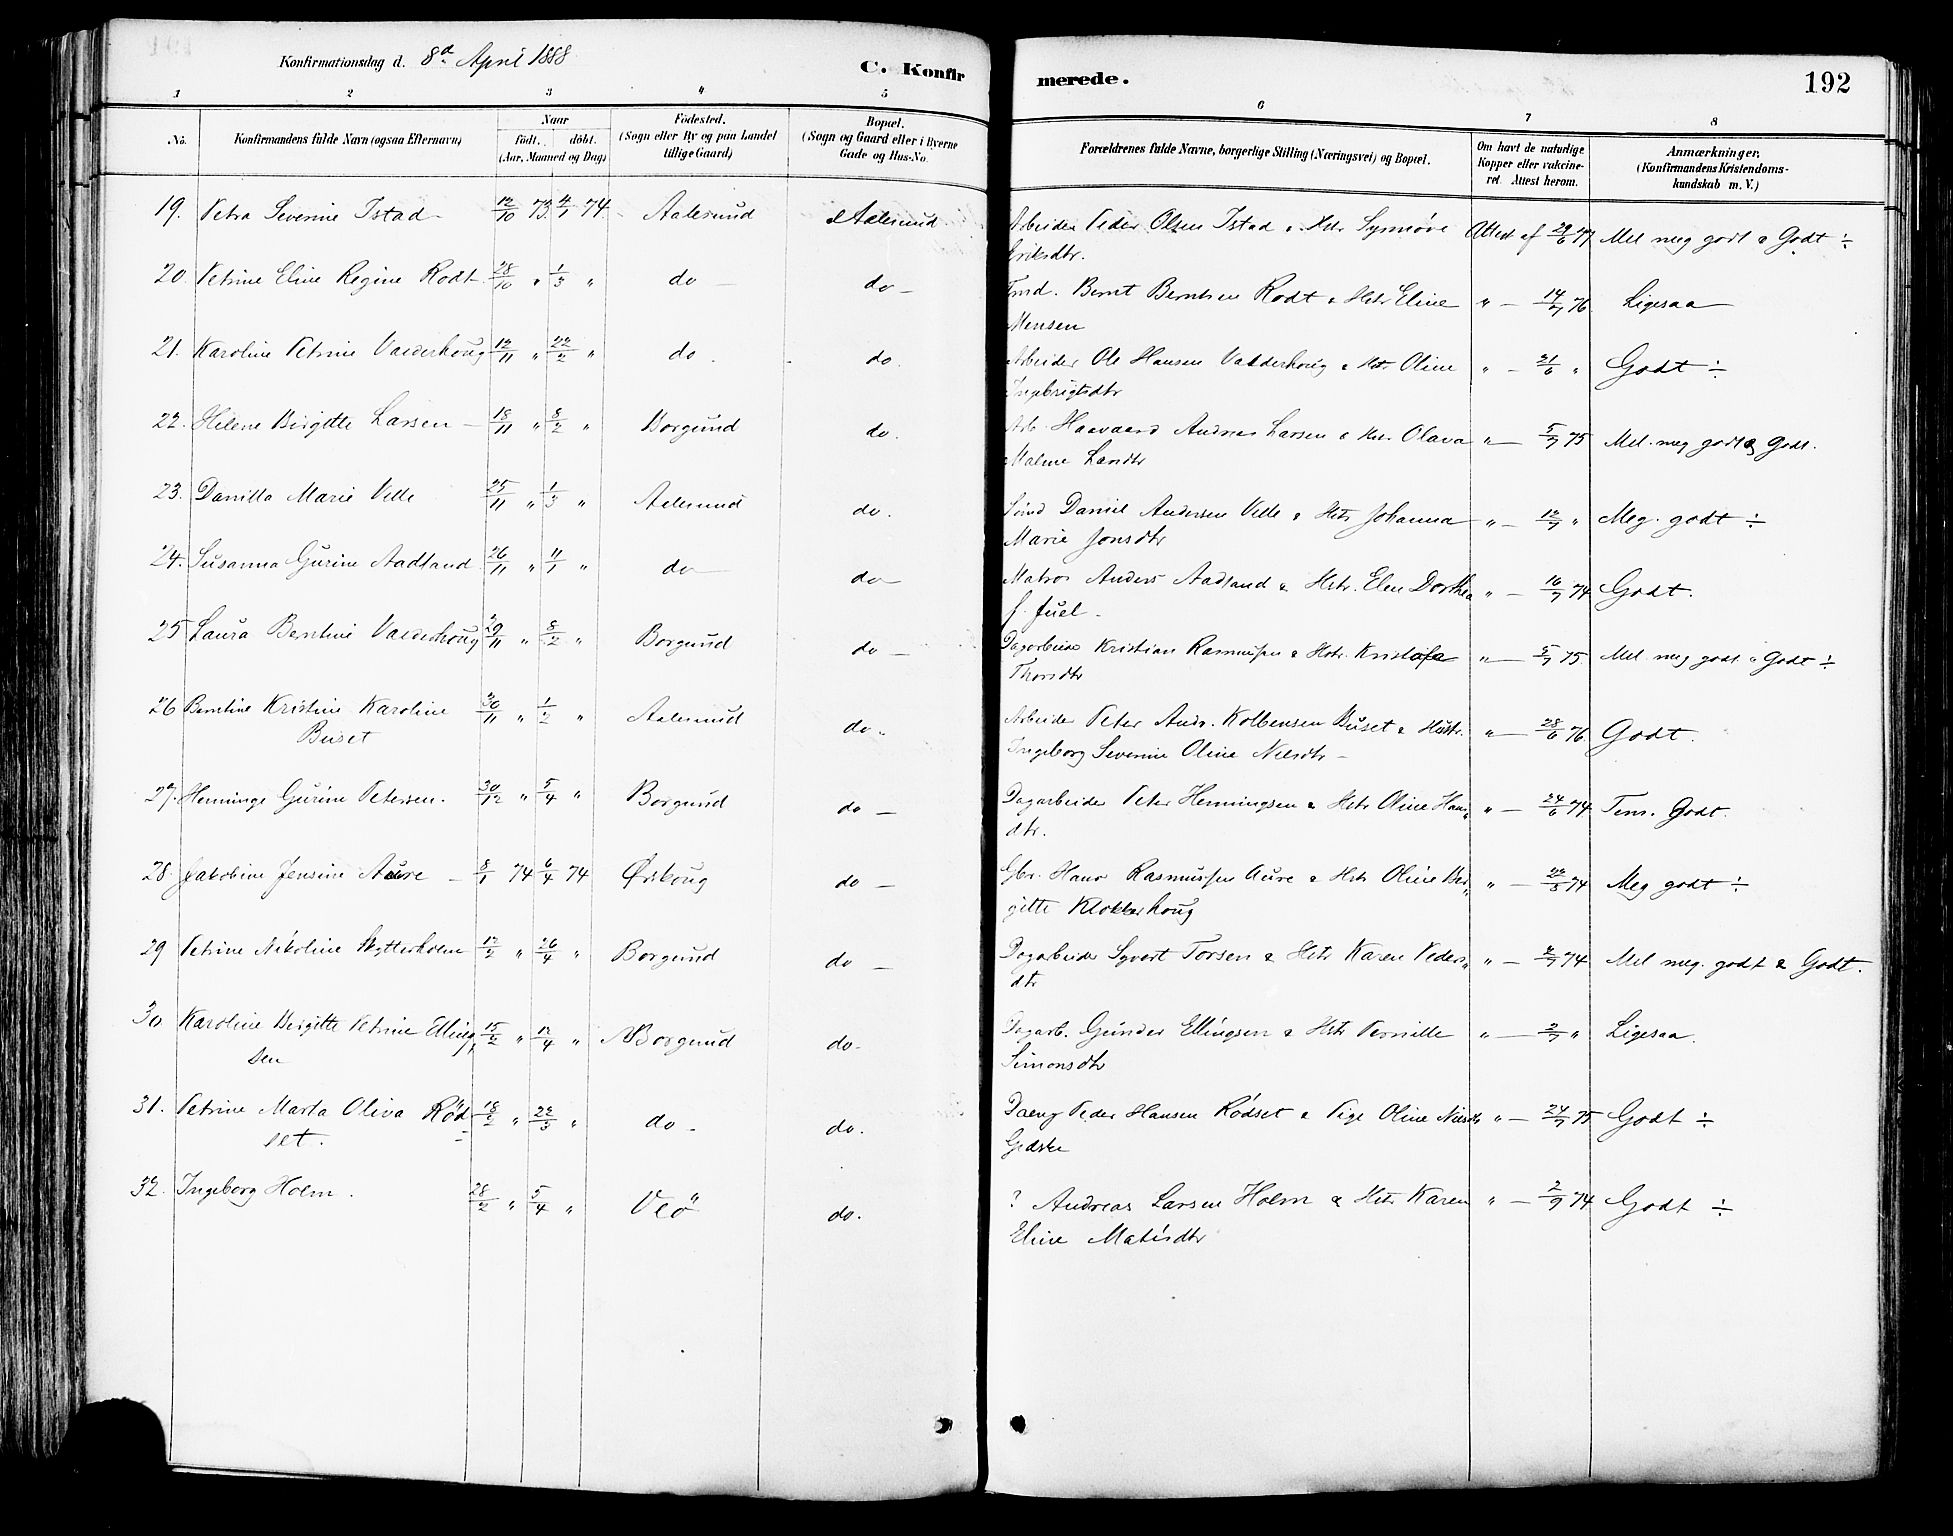 Konfirmationsdag d. 8d April 1888
C. Konfirmerede.
192
1 2 3 4 5 6 7 8
No. Konfirmandens fulde Navn (ogsaa Efternavn) Naar født. døbt. (Aar, Maaned og Dag) Födested. (Sogn eller By og paa Landet tillige Gaard) Bopæl. (Sogn og Gaard eller i Byerne Gade og Hus-No. Forældrenes fulde Navne, borgerlige Stilling (Næringsvei) og Bopæl. Om havt de naturlige Kopper eller vakcineret Attest herom. Anmærkninger. (Konfirmandens Kristendomskundskab m. V.)
19. Petra Severine Istad 12/10 73 4/1 74 Aalesund Aalesund Arbeider Peder Olsen Istad & Hstr. Synnøve Attest af 29/6 77 Mel meg godt & Godt ÷
Eriksdtr.
20. Petrine Eline Regine Rodt 28/10 " 1/3 " do do Tmd. Bernt Berntsen Rodt & Hstr Eline " 14/7 76 Ligesaa
Mensen
21. Karoline Petrine Valderhoug 12/11 " 22/2 " do. do. Arbeider Ole Hansen Valderhoug & Hstr. Oline " 21/6 " Godt ÷
Ingebrigtsdtr
22. Helene Birgitte Larsen 18/11 " 8/2 " Borgund do. Arb. Haavaard Andreas Larsen & Hstr. Olava " 5/7 75 Mel. meg godt og Godt.
Malene Larsdtr
23. Danilla Marie Velle 25/11 " 1/3 " Aalesund do. Daniel Andersen Velle & Hstr Johanna " 12/7 " Meg. godt ÷
Marie Jonsdtr
24. Susanna Gurine Aadland 26/11 " 4/1 " do do Matros Anders Aadland & Hstr. Elen Dorthea " 16/7 74 Godt.
f. Juel
25 Laura Bentine Valderhoug 29/11 " 8/2 " Borgund do Dagarbeider Kristian Rasmussen & Hstr. Kristofa " 5/7 75 Mel. meg godt & Godt ÷
Thorsdtr
26 Berntine Kristine Karoline 30/11 " 1/2 " Aalesund do Arbeider Peter Andr. Kolbensen Buset & Hustr. " 28/6 76. Godt.
Buset Ingeborg Severine Oline Nilsdtr
27. Henninge Gurine Petersen. 30/12 " 5/4 " Borgund do Dagarbeider Peter Henningsen & Hstr Oline Hans " 24/6 74 Tem. Godt.
dtr.
28. Jakobine Jensine Aure 8/1 74 6/4 74 Ørskoug do Gbr. Hans Rasmussen Aure & Hstr Oline Bir " 22/8 74 Meg godt ÷
gitte Klokkerhoug
29 Petrine Nikoline Skytterholm 12/2 " 26/4 " Borgund do Dagarbeider Syvert Torsen & Hstr Karen Peders " 2/7 74 Mel meg. godt & Godt.
dtr
30. Karoline Birgitte Petrine Elling 15/2 " 12/4 " Borgund do Dagarb. Gunder Ellingsen & Hstr Pernille " 2/7 " Ligesaa.
sen Simonsdtr
31. Petrine Marta Oliva Röd 18/2 " 22/3 " do do. Peder Hansen Rødset & Pige Oline Nilsdtr " 24/7 75 Godt ÷
set. Gjedske
32. Ingeborg Holm. 28/2 " 5/4 " Veö do. ? Andreas Larsen Holm & Hstr Karen " 2/9 74 Godt ÷
Eline Matisdtr